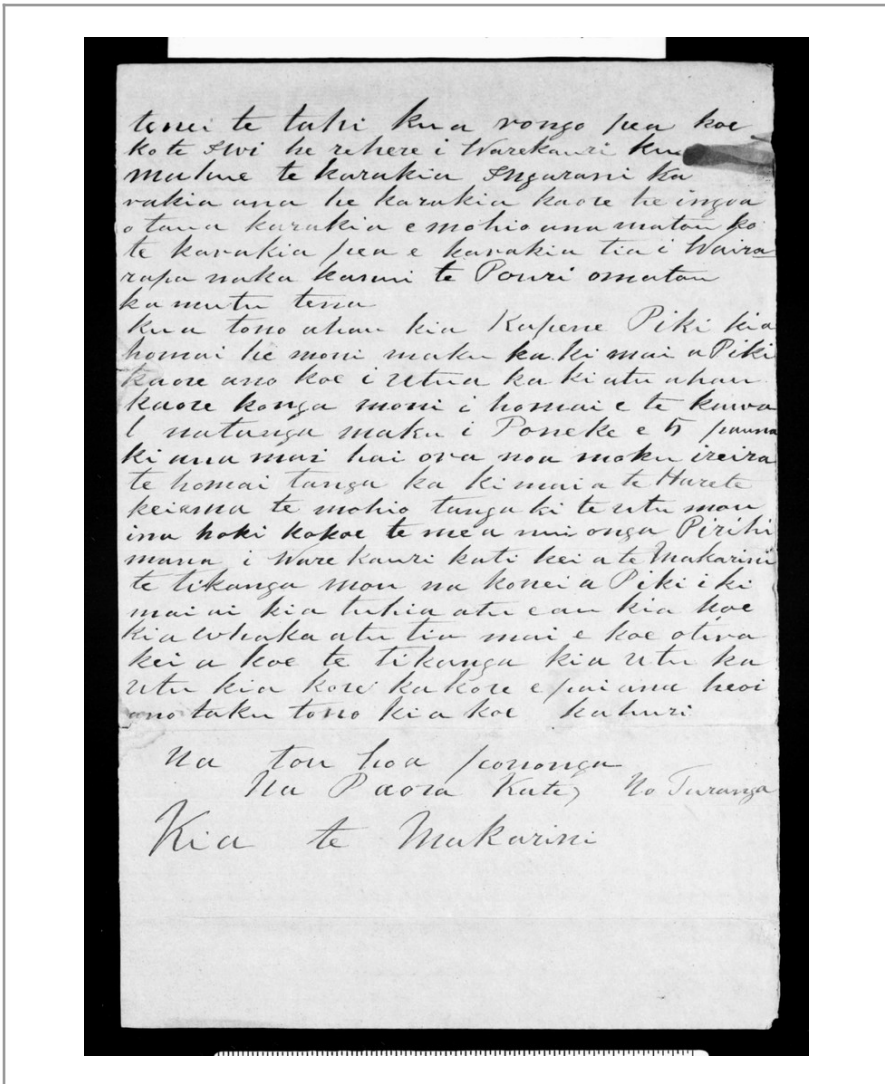 tenei te tahi kua rongo pea koe
ko te Iwi he rehere i Warekauri kua
mahue te karakia Ingarani ka
rakia ana he karakia kaore he ingoa
o tana karakia e mohio ana matou ko
te karakia pea e karakia tia i Waira
rapa naka kasmi te Pouri omatou
ka mutu tena
kua tono ahau kia Kapene Piki kia
homai he moni maku ka.ki mai a Piki
kaore ano koe i utua ka ki atu ahau
kaore konga moni i homai e te kawa
l natanga maku i Poneke e 5 pauna
ki ana mai hai ora noa moku ireira
te homai tanga ka ki mai a te Harete
keiama te mohio tanga ki te utu mou
ina hoki kokoe te mea nui onga Pirihi
mana i Warekauri kati kei a te Makarini
te tikanga mou na konei a Piki i ki
mai ai kia tuhia atu e au kia koe
kia whaka atu tia mai e koe otira
kei a koe te tikanga kia utu ka
utu kia kore ka kore e pai ana heoi
ano taku tono kia koe ka huri
Na tou hoa pononga
Na Paora Kate, No Turanga
Kia te Makarini